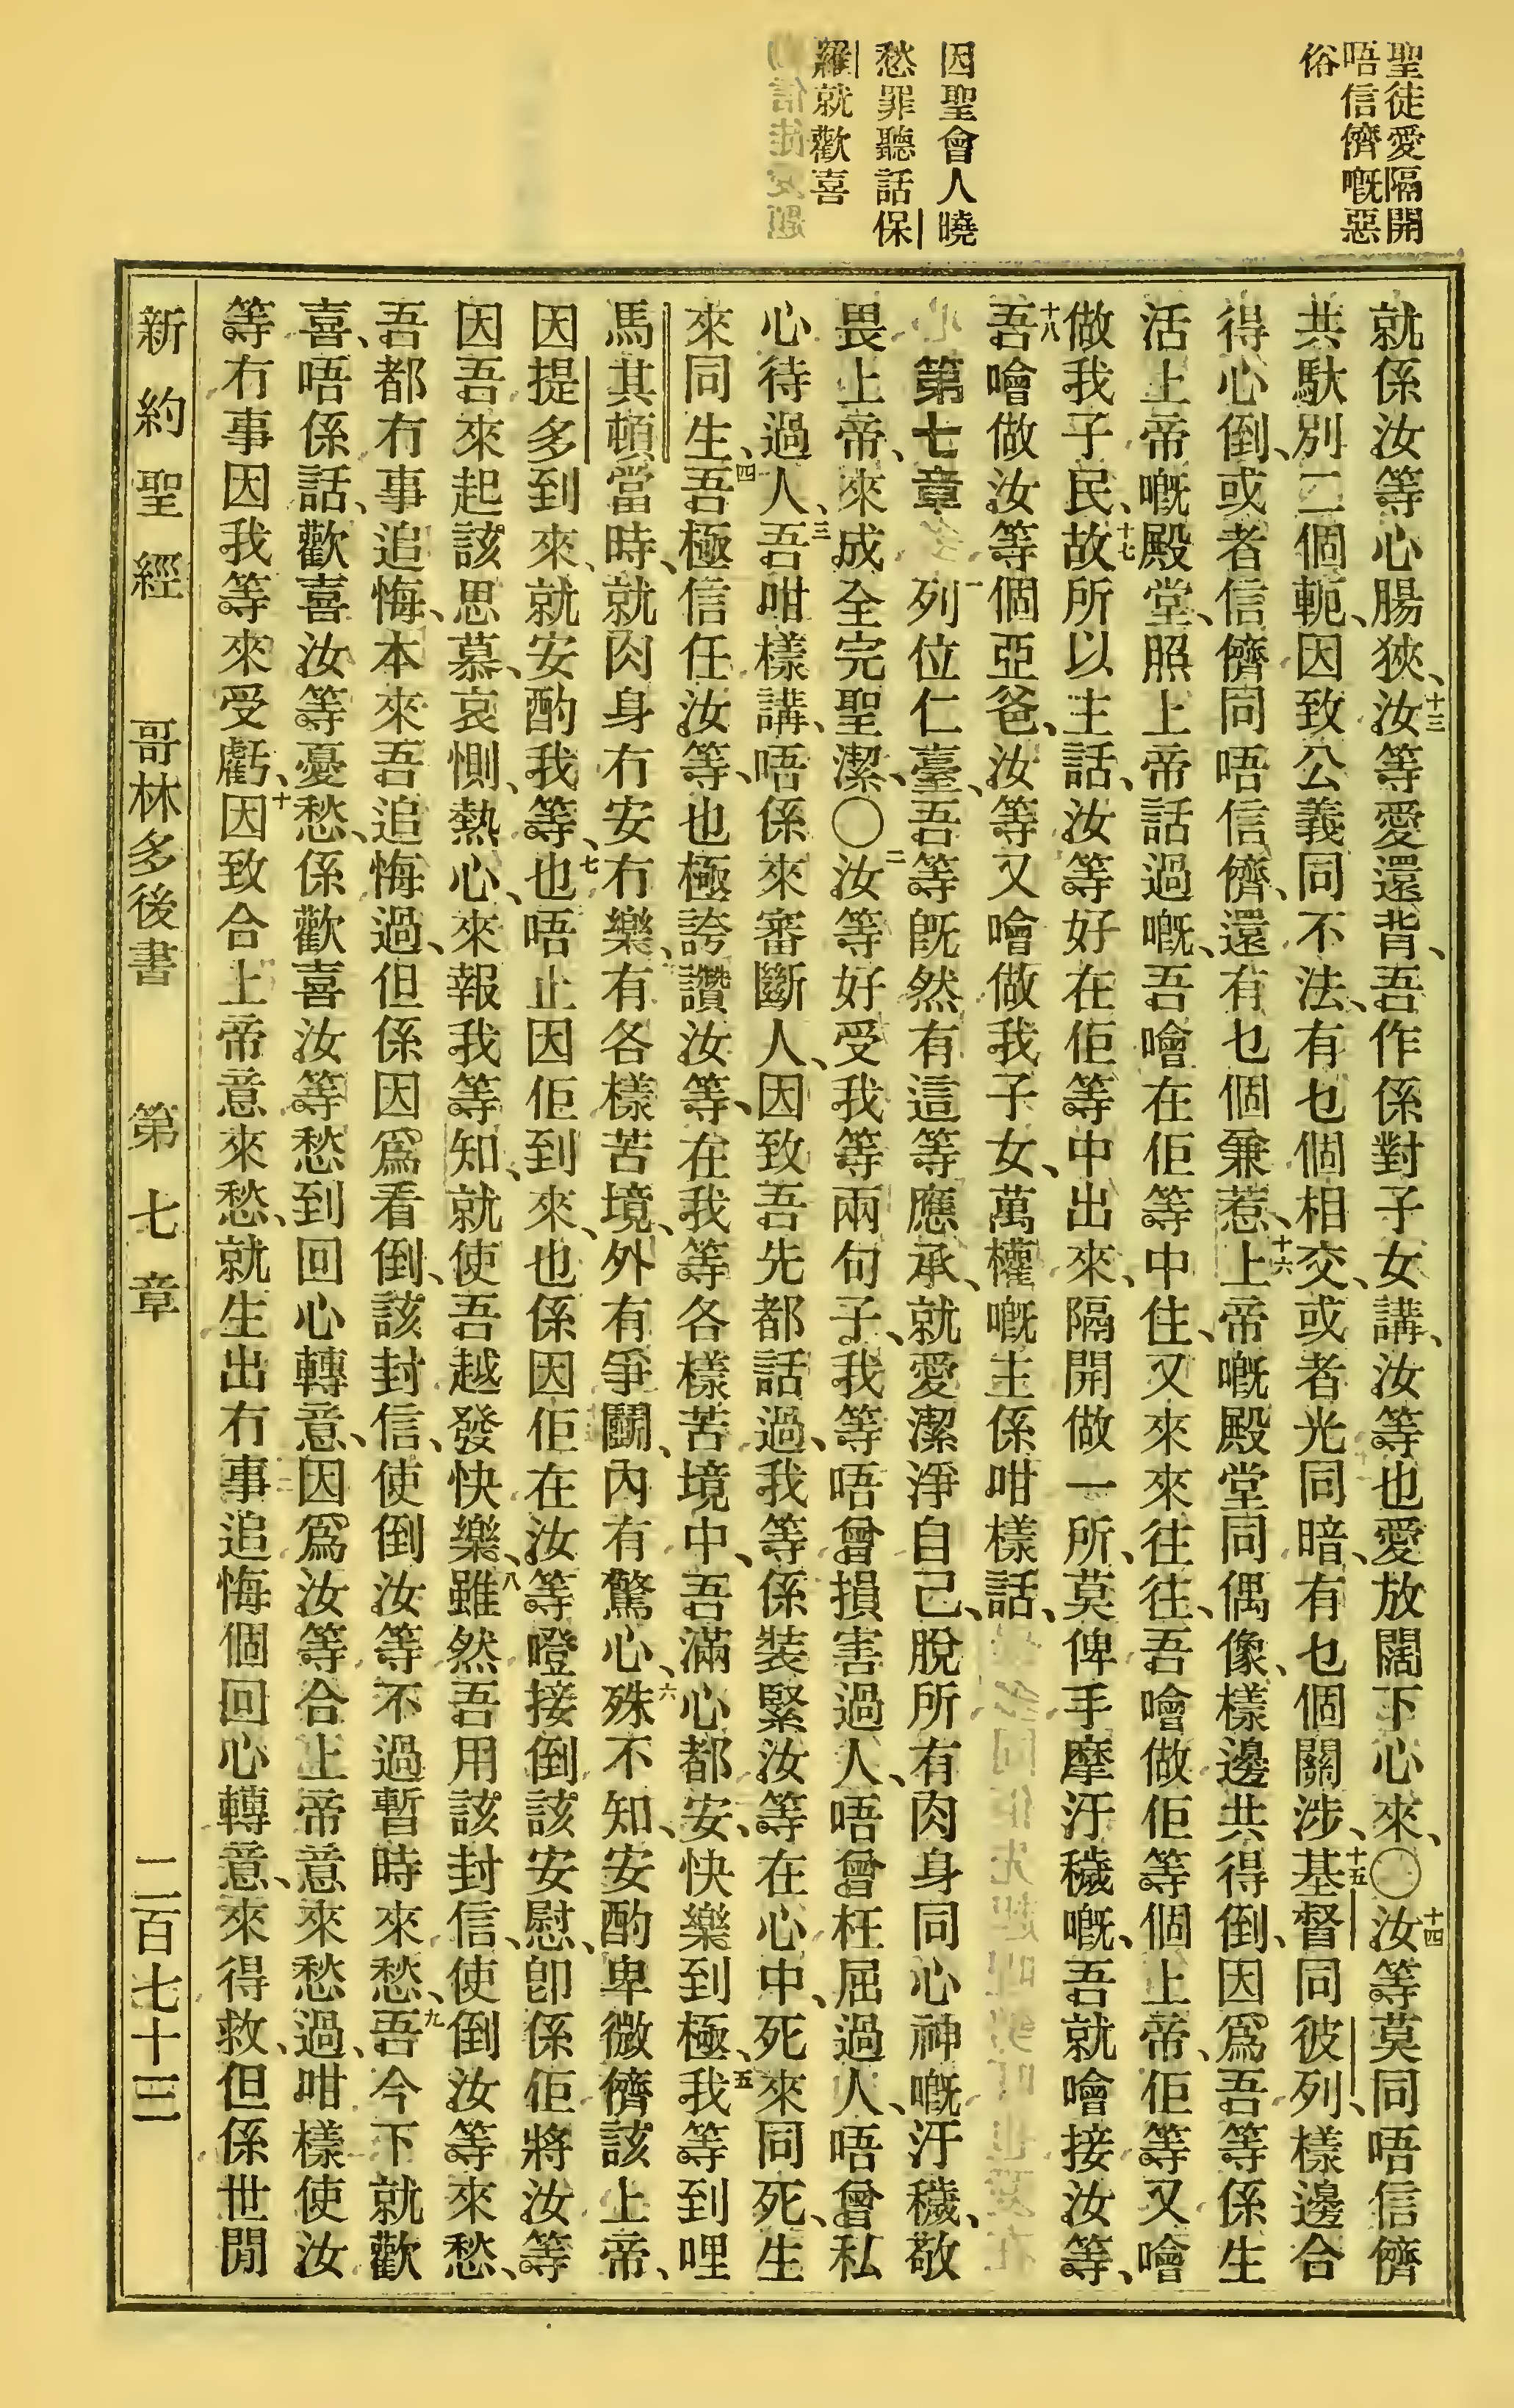 聖徒愛隔開
唔信儕嘅惡
俗
因聖會人曉
愁罪聽話保
羅就歡喜
就係汝等心腸狹、十三汝等愛還背、吾作係對子女講、汝等也愛放闊下心來、〇十四汝等莫同唔信儕
共馱別二個軛、因致公義同不法、有乜個相交、或者光同暗、有乜個關涉、十五基督同彼列、樣邊合
得心倒、或者信儕同唔信儕、還有乜個兼惹、十六上帝嘅殿堂同偶像、樣邊共得倒、因爲吾等係生
活上帝嘅殿堂、照上帝話過嘅、吾噲在佢等中住、又來來往往、吾噲做佢等個上帝、佢等又噲
做我子民、十七故所以主話、汝等好在佢等中出來、隔開做一所、莫俾手摩汙穢嘅、吾就噲接汝等、
十八吾噲做汝等個亞爸、汝等又噲做我子女、萬權嘅主係咁樣話、
第七章 一列位仁臺、吾等旣然有這等應承、就愛潔淨自己、脫所有肉身同心神嘅汙穢、敬
畏上帝、來成全完聖潔、〇二汝等好受我等兩句子、我等唔曾損害過人、唔曾枉屈過人、唔曾私
心待過人、三吾咁樣講、唔係來審斷人、因致吾先都話過、我等係裝緊汝等在心中、死來同死、生
來同生、四吾極信任汝等、也極誇讚汝等、在我等各樣苦境中、吾滿心都安、快樂到極、五我等到哩
馬其頓當時、就肉身冇安冇樂、有各樣苦境、外有爭鬭、內有驚心、六殊不知、安酌卑微儕該上帝、
因提多到來、就安酌我等、七也唔止因佢到來、也係因佢在汝等噔接倒該安慰、卽係佢將汝等
因吾來起該思慕、哀惻、熱心、來報我等知、就使吾越發快樂、八雖然吾用該封信、使倒汝等來愁、
吾都冇事追悔、本來吾追悔過、但係因爲看倒、該封信、使倒汝等不過暫時來愁、九吾今下就歡
喜、唔係話、歡喜汝等憂愁、係歡喜汝等愁到回心轉意、因爲汝等合上帝意來愁過、咁樣使汝
等冇事因我等來受虧、十因致合上帝意來愁、就生出冇事追悔個回心轉意、來得救、但係世間
新約聖經 哥林多後書 第七章 二百七十三